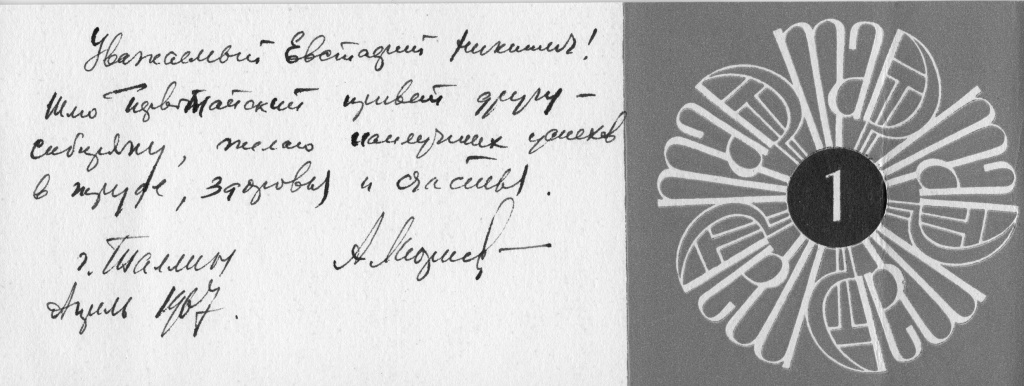 Уважаемый Евстафий Никитич!
Шлю первомайский привет другу-
сибиряку, желаю наилучших успехов
в труде, здоровья и счастья.
г. Таллин
Апрель 1967.
1